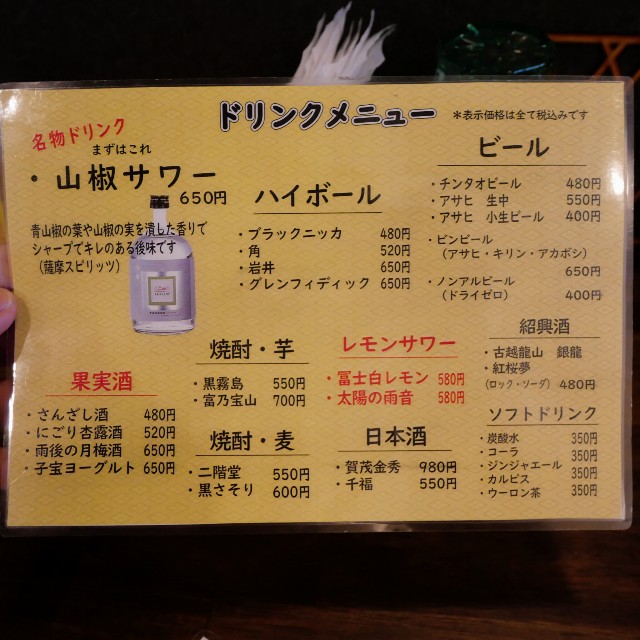 ドリンクメニュー
*表示価格は全て税込みです
名物ドリンク
まずはこれ
・山椒サワー
650円
青山椒の葉や山椒の実を潰した香りで
シャープでキレのある後味です
(薩摩スピリッツ)
ハイボール
・ブラックニッカ 480円
・角 520円
・岩井 650円
・グレンフィディック 650円
ビール
・チンタオビール 480円
・アサヒ 生中 550円
・アサヒ 小生ビール 400円
・ビンビール
(アサヒ・キリン・アカボシ)
650円
・ノンアルビール
(ドライゼロ) 400円
果実酒
・さんざし酒 480円
・にごり杏露酒 520円
・雨後の月梅酒 650円
・子宝ヨーグルト 650円
焼酎・芋
・黒霧島 550円
・富乃宝山 700円
焼酎・麦
・二階堂 550円
・黒さそり 600円
レモンサワー
・冨士白レモン 580円
・太陽の雨音 580円
日本酒
・賀茂金秀 980円
・千福 550円
紹興酒
・古越龍山 銀龍
・紅桜夢
(ロック・ソーダ) 480円
ソフトドリンク
・炭酸水 350円
・コーラ 350円
・ジンジャエール 350円
・カルピス 350円
・ウーロン茶 350円